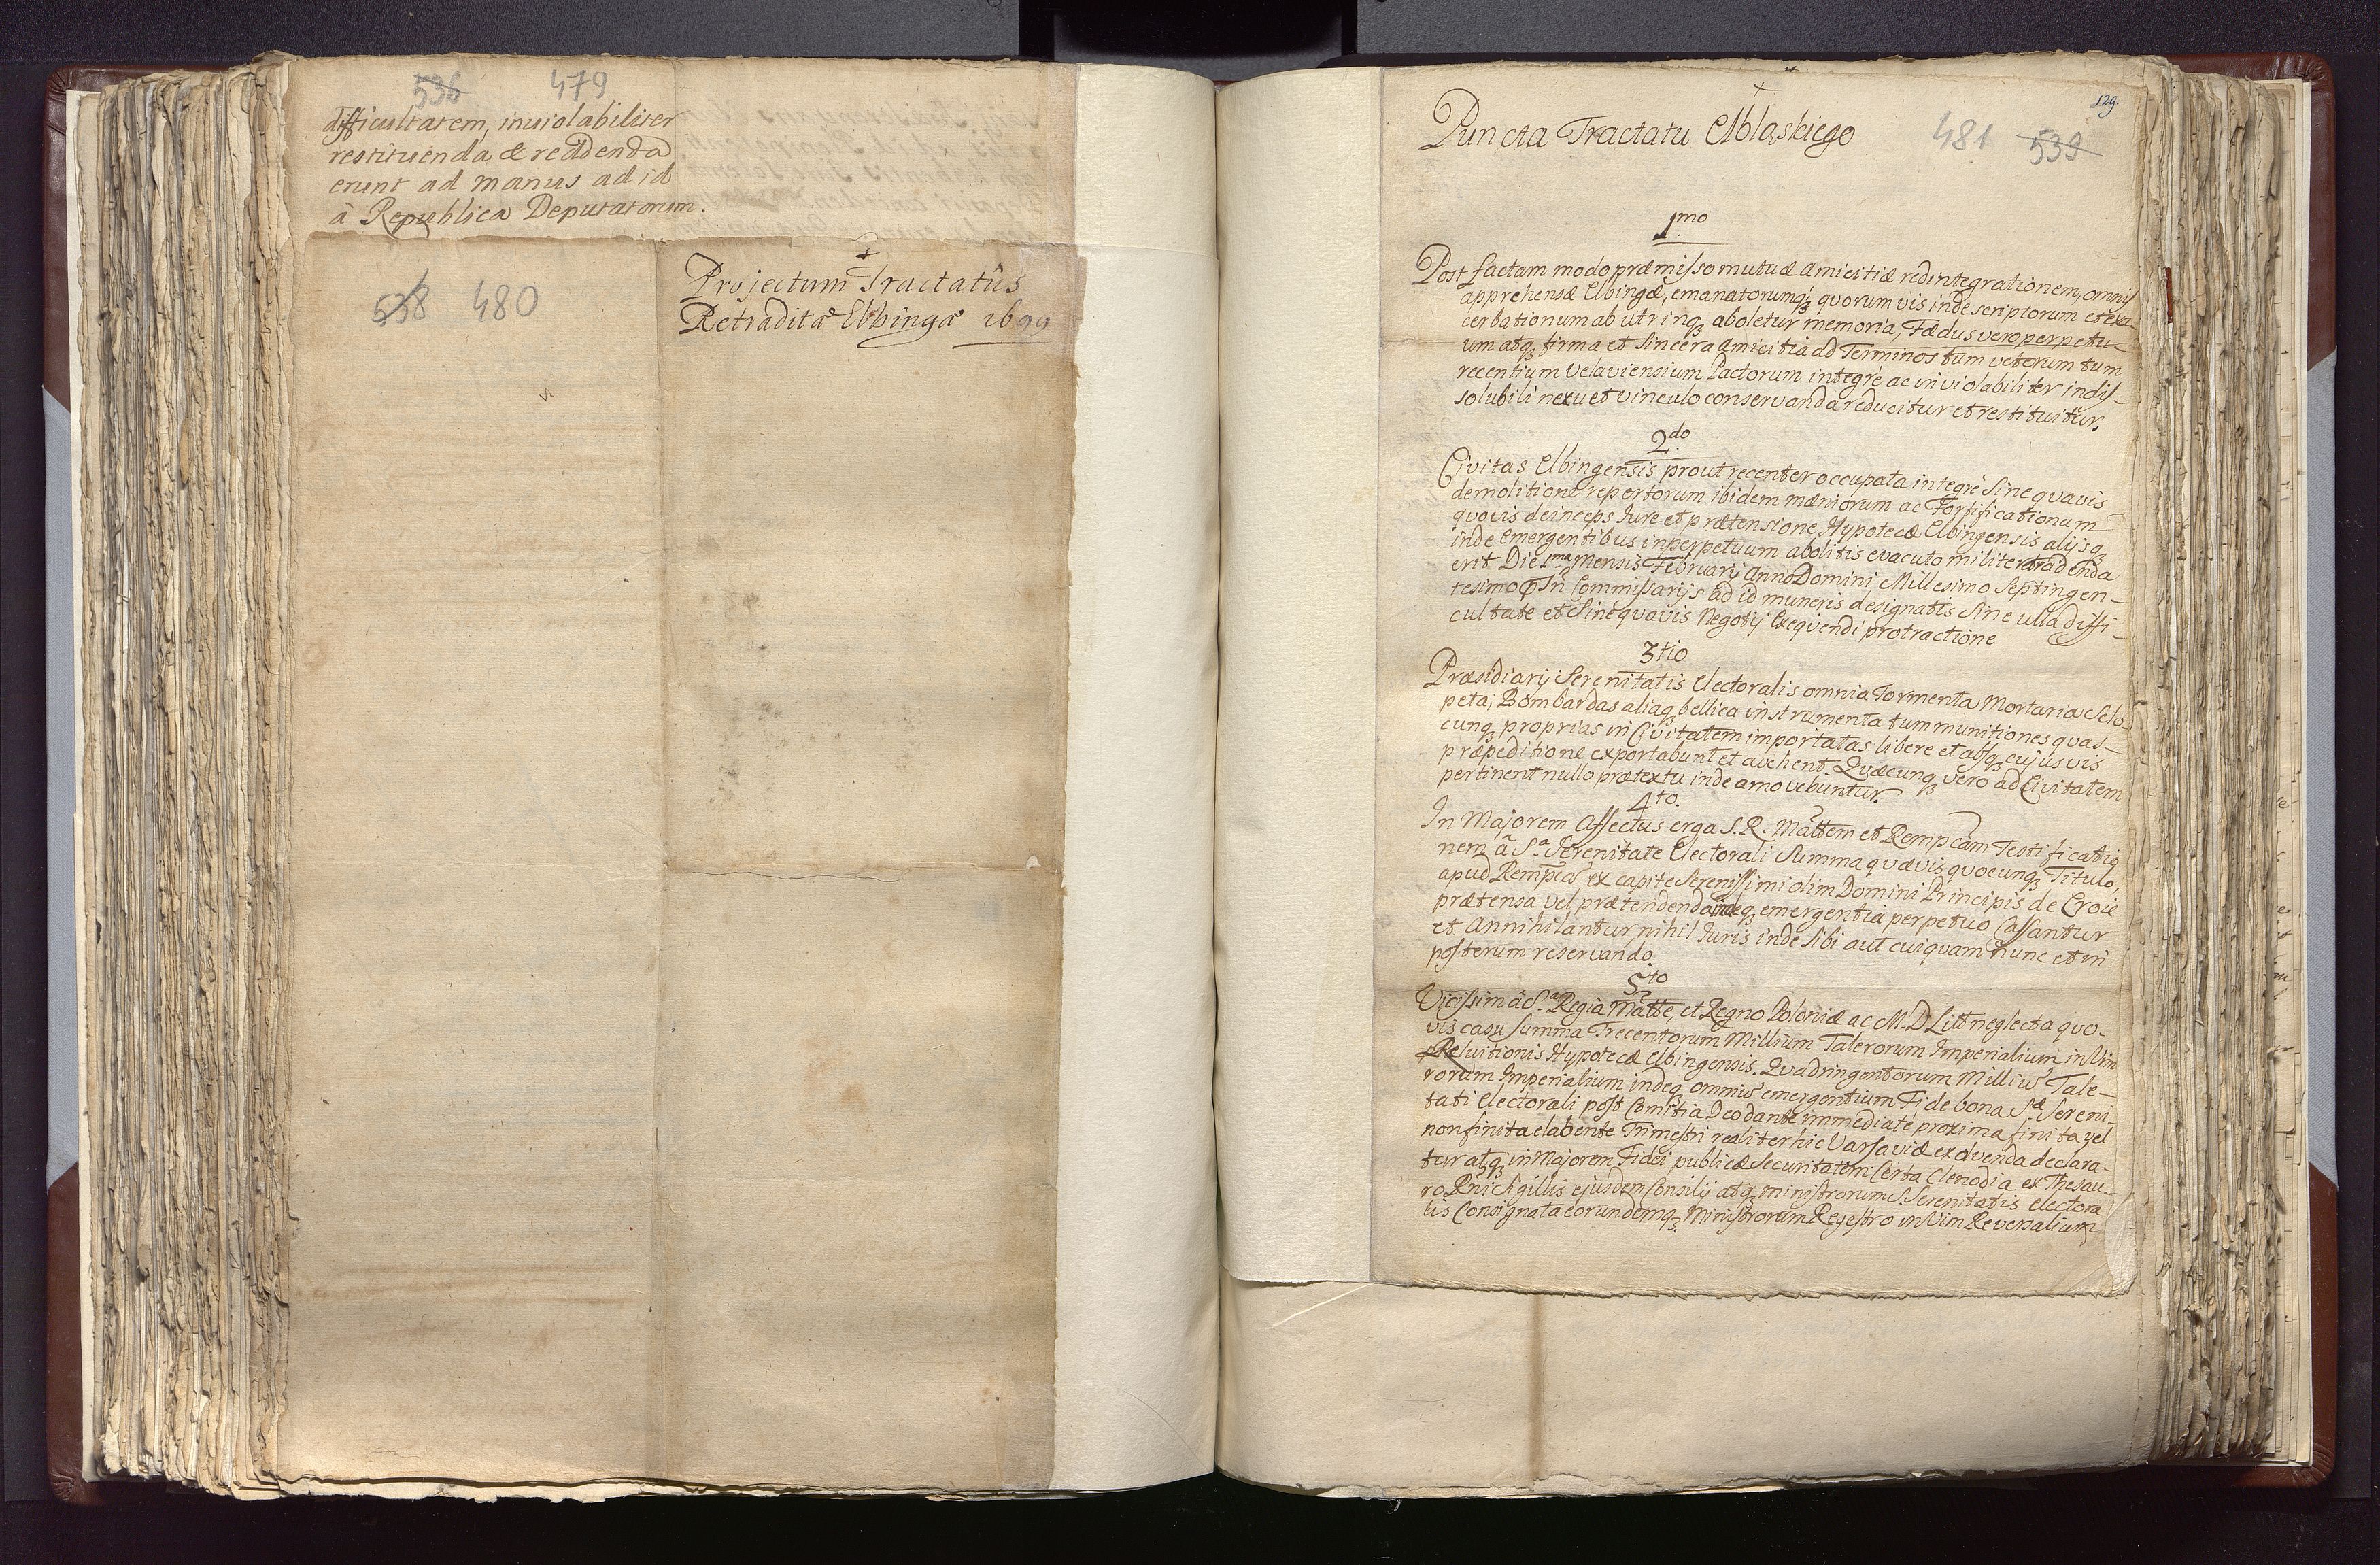 536 479
difficultatem, inviolabiliter
restituenda & reddenda
erunt ad manus ad id
â Republica Deputatorum.
538 480
Projectum Tractatûs
Retraditæ Elbingæ 1699
129.
Puncta Tractatu Elbląskiego
481 539
1mo
Post factam modo præmisso mutuæ amicitiæ redintegrationem, omnis
apprehensæ Elbingæ, emanatorumq; quorumvis inde scriptorum et exa-
cerbationum ab utrinq; aboletur memoria, Fædus vero perpetu-
um atq; firma et Sincera Amicitia ad Terminos tum veterum tum
recentium Velaviensium Pactorum integrè ac inviolabiliter indis-
solubili nexu et vinculo conservanda reducitur et restituitur.
2do
Civitas Elbingensis prout recenter occupata integrè Sine quavis
demolitione repertorum ibidem mæniorum ac Fortificationum
quovis deinceps Iure et prætensione Hypotecæ Elbingensis alijsq;
inde emergentibus inperpetuum abolitis evacuto milite tradenda
erit Die 1ma Mensis Februarij Anno Domini Millesimo Septingen-
tesimo Commissarijs ad id muneris designatis Sine ulla diffi-
cultate et Sine quavis Negotij Exequendi protractione
3tio
Præsidiarij Serenitatis Electoralis omnia Tormenta Mortaria Sclo-
peta, Bombardas aliaq; bellica instrumenta tum munitiones quas-
cunq; proprias in Civitatem importatas libere et absq; cujusvis
præpeditione exportabunt et avehent. Quæcunq; vero ad Civitatem
pertinent nullo prætextu inde amovebuntur.
4to.
In Majorem Affectus erga S. R. Mattem et Rempcam Testificatio
nem â Sa. Serenitate Electorali Summa quævis quocunq; Titulo,
apud Rempca ex capite Serenissimi olim Domini Principis de Croie
prætensa vel prætendenda indeq; emergentia perpetuo Cassantur
et Annihilantur, nihil Iuris inde Sibi aut cuiquam nunc et in
posterum reservando.
5to
Vicissim â Sa. Regia Matte, et Regno Poloniæ ac M. D. Litt neglecta quo-
vis casu Summa Trecentorum Millium Talerorum Imperialium in Vim
Reluitionis Hypotecæ Elbingensis. Quadringentorum Milliu Tale-
rorum Imperialium indeq; omnis emergentium Fide bona Sæ Sereni-
tati Electorali post Comitia Deo dante immediatè proxima finita vel
non finita elabente Trimestri realiter hic Varsaviæ exolvenda declara-
tur atq; in Majorem Fidei publicæ Securitatem Certa Clenodia ex Thesau-
ro Rni Sigillis ejusdem Consilij atq; ministrorum S. Serenitatis electora
lis Consignata eorundemq; Ministrorum Regestro in Vim Reversalium